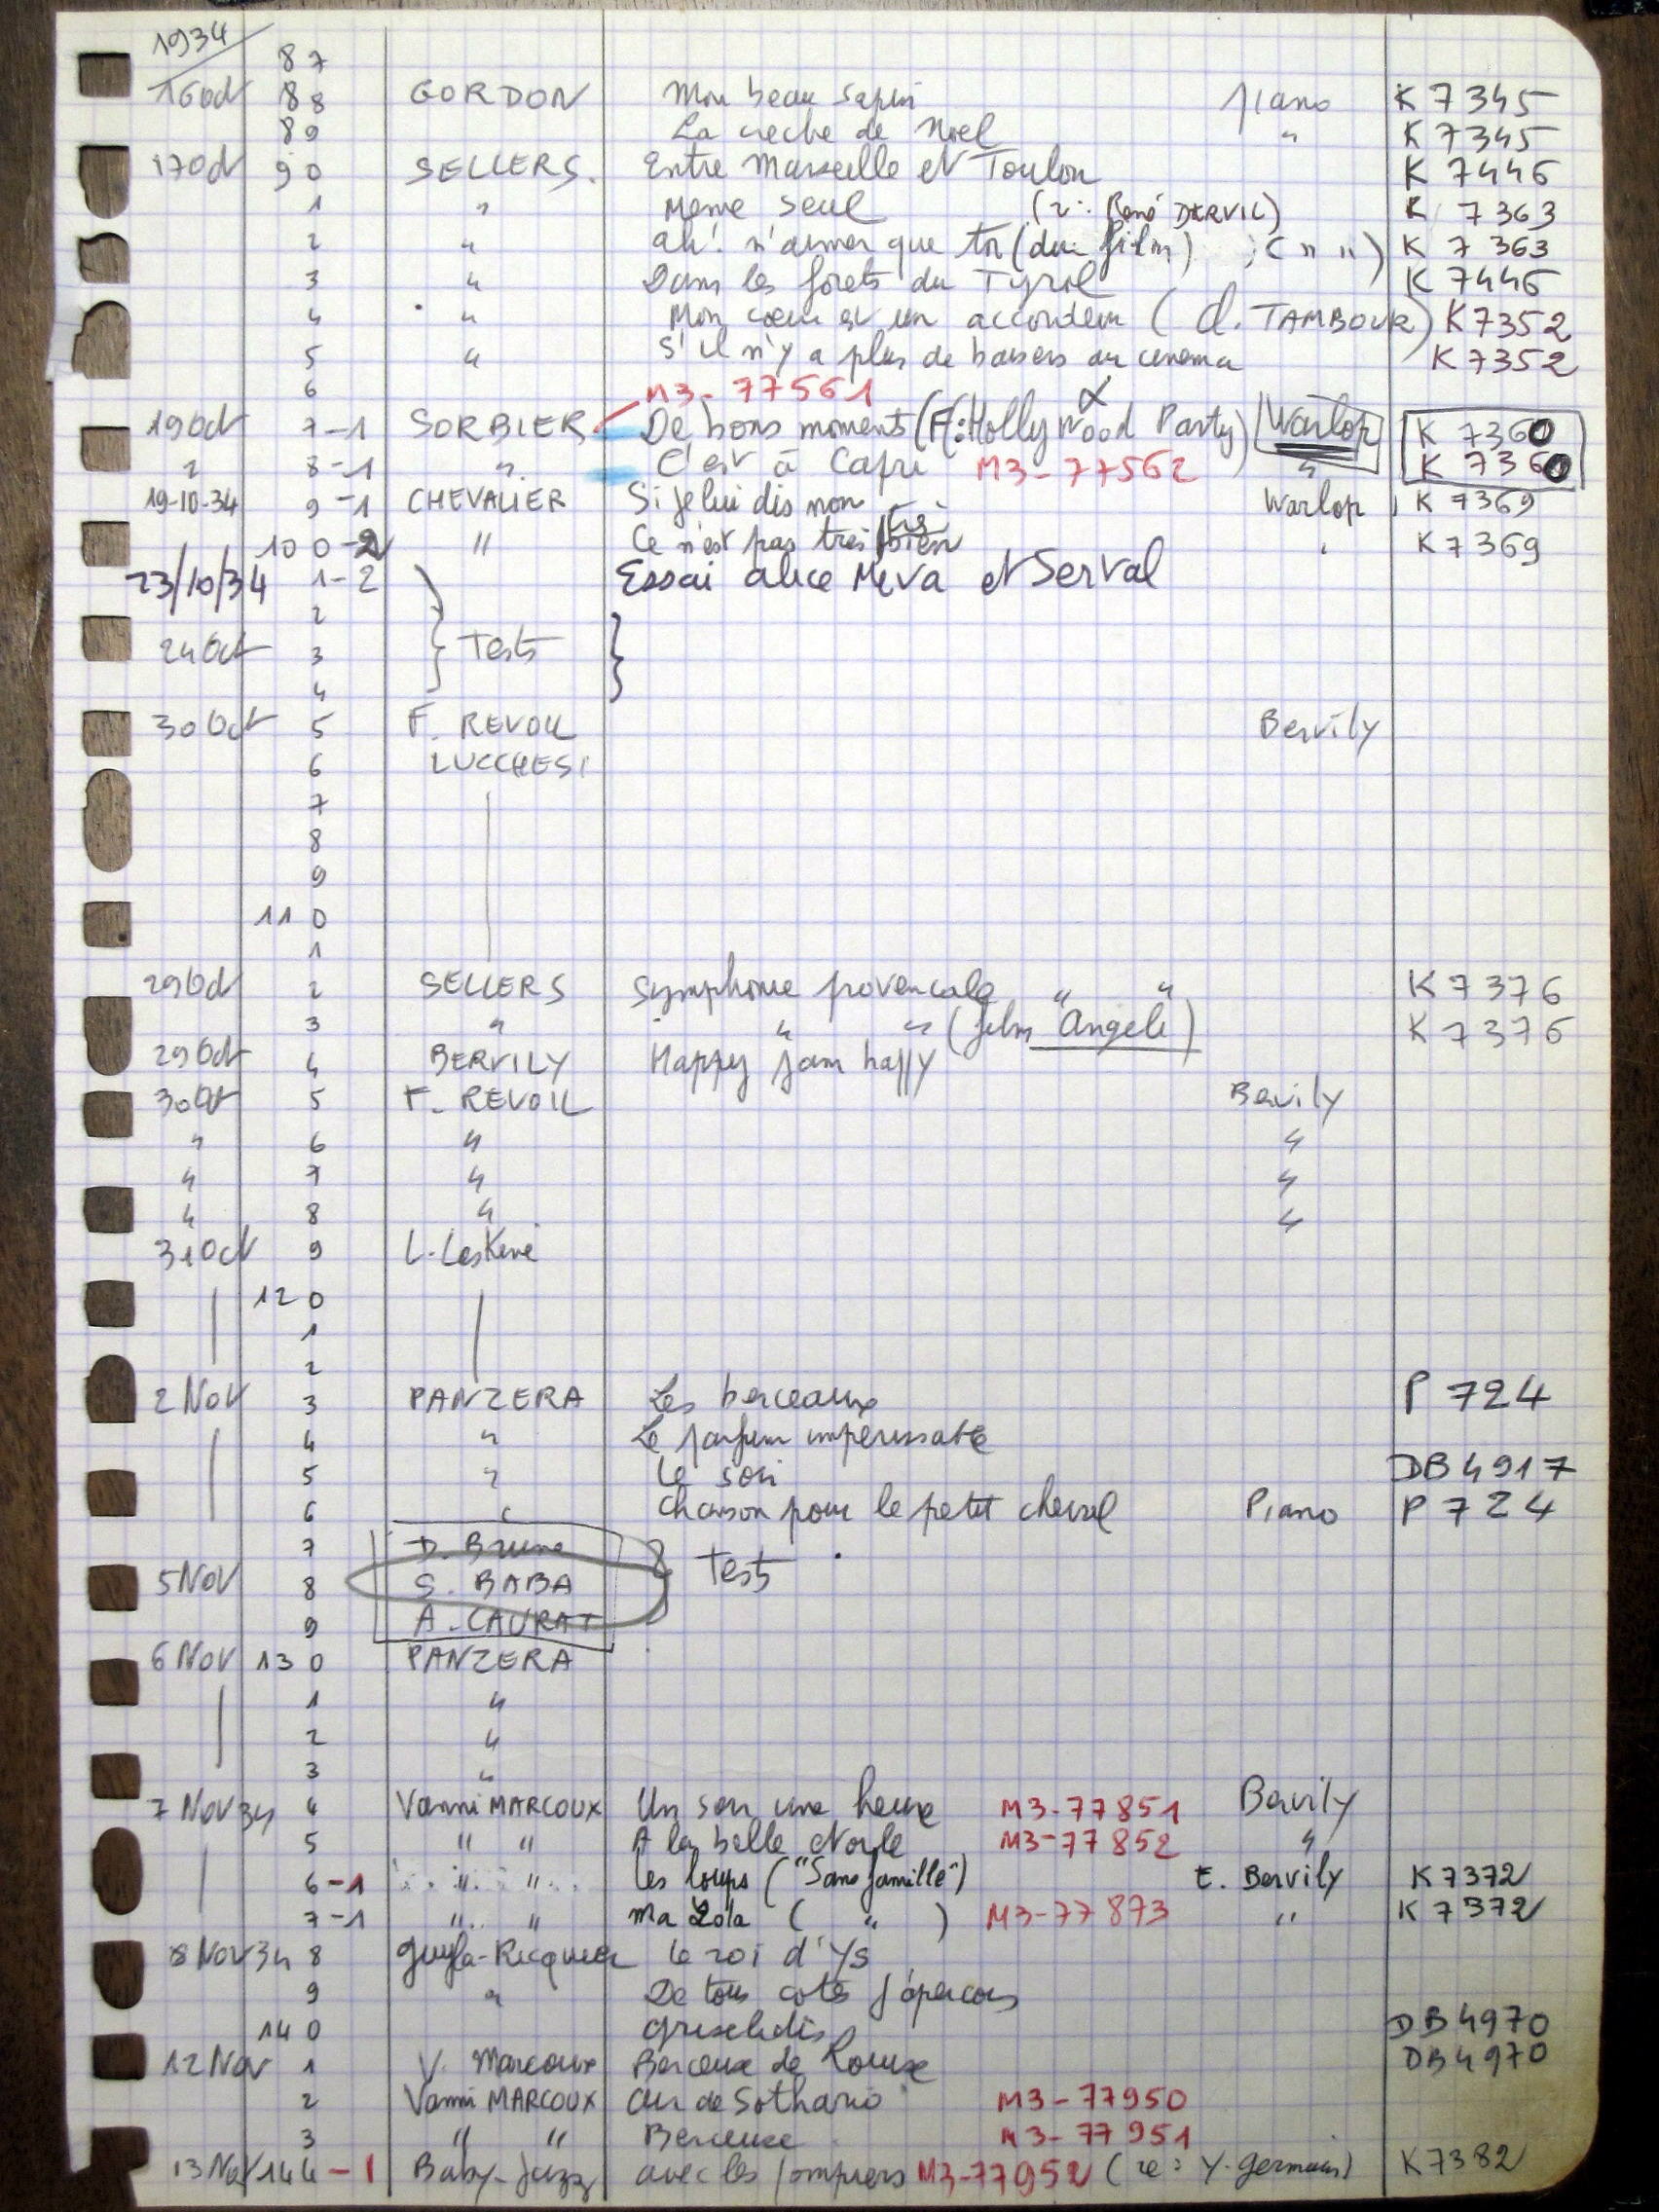 1934
87
16 Oct 88 GORDON Mon beau sapin piano K 7345
89 La creche de Noel " K 7345
17 Oct 90 SELLERS. Entre Marseille et Toulon K 7446
1 " Meme seul (r: René DERVIL) K 7363
2 " ah! n'aimer que toi (du film) ; ( " " ) K 7363
3 " Dans les forets du Tyrol K 7446
4 " Mon cœur est un accordeon ( d. TAMBOUR) K 7352
5 " S'il n'y a plus de baisers au cinema K 7352
6 M3-77561
19 Oct 7-1 SORBIER De bons moments (F:Hollywood Party) Warlop K 7360
" 8-1 " C'est à Capri M3-77562 " K 7360
19-10-34 9-1 CHEVALIER Si je lui dis non Warlop K 7369
10 0-2 " Ce n'est pas tres bien " K 7369
23/10/34 1-2 Essai alice Meva et Serval
2
24 Oct 3 } Tests }
4
30 Oct 5 F. REVOIL Bervily
6 LUCCHESI
7
8
9
11 0
1
29 Oct 2 SELLERS Symphonie provencale " " K 7376
3 " " " (film "Angele") K 7376
29 Oct 4 BERVILY Happy jam happy
30 Oct 5 F. REVOIL Bervily
" 6 " "
" 7 " "
" 8 " "
31 Oct 9 L. Leskine
12 0
1
2
2 Nov 3 PANZERA Les berceaux P 724
4 " Le parfum imperissable
5 " Le soir DB 4917
6 " Chanson pour le petit cheval Piano P 724
7 D. Brune
5 Nov 8 S. BABA Test
9 A. CAURAT
6 Nov 13 0 PANZERA
1 "
2 "
3 "
7 Nov 34 4 Vanni MARCOUX Un soir une heure M3-77851 Bervily
5 " " A la belle etoile M3-77852 "
6-1 " " Les loups ("Sans famille") E. Bervily K 7372
7-1 " " Ma Lola ( " ) M3-77873 " K 7372
8 Nov 34 8 Guyla-Recquier Le roi d'Ys
9 " De tous cotés j'apercois
14 0 Griselidis DB 4970
12 Nov 1 V. Marcoux Berceuse de Louise DB 4970
2 Vanni MARCOUX air de Lothario M3-77950
3 " " Berceuse M3-77951
13 Nov 144-1 Baby-Jazz avec les pompiers M3-77952 (re: Y. Germain) K 7382